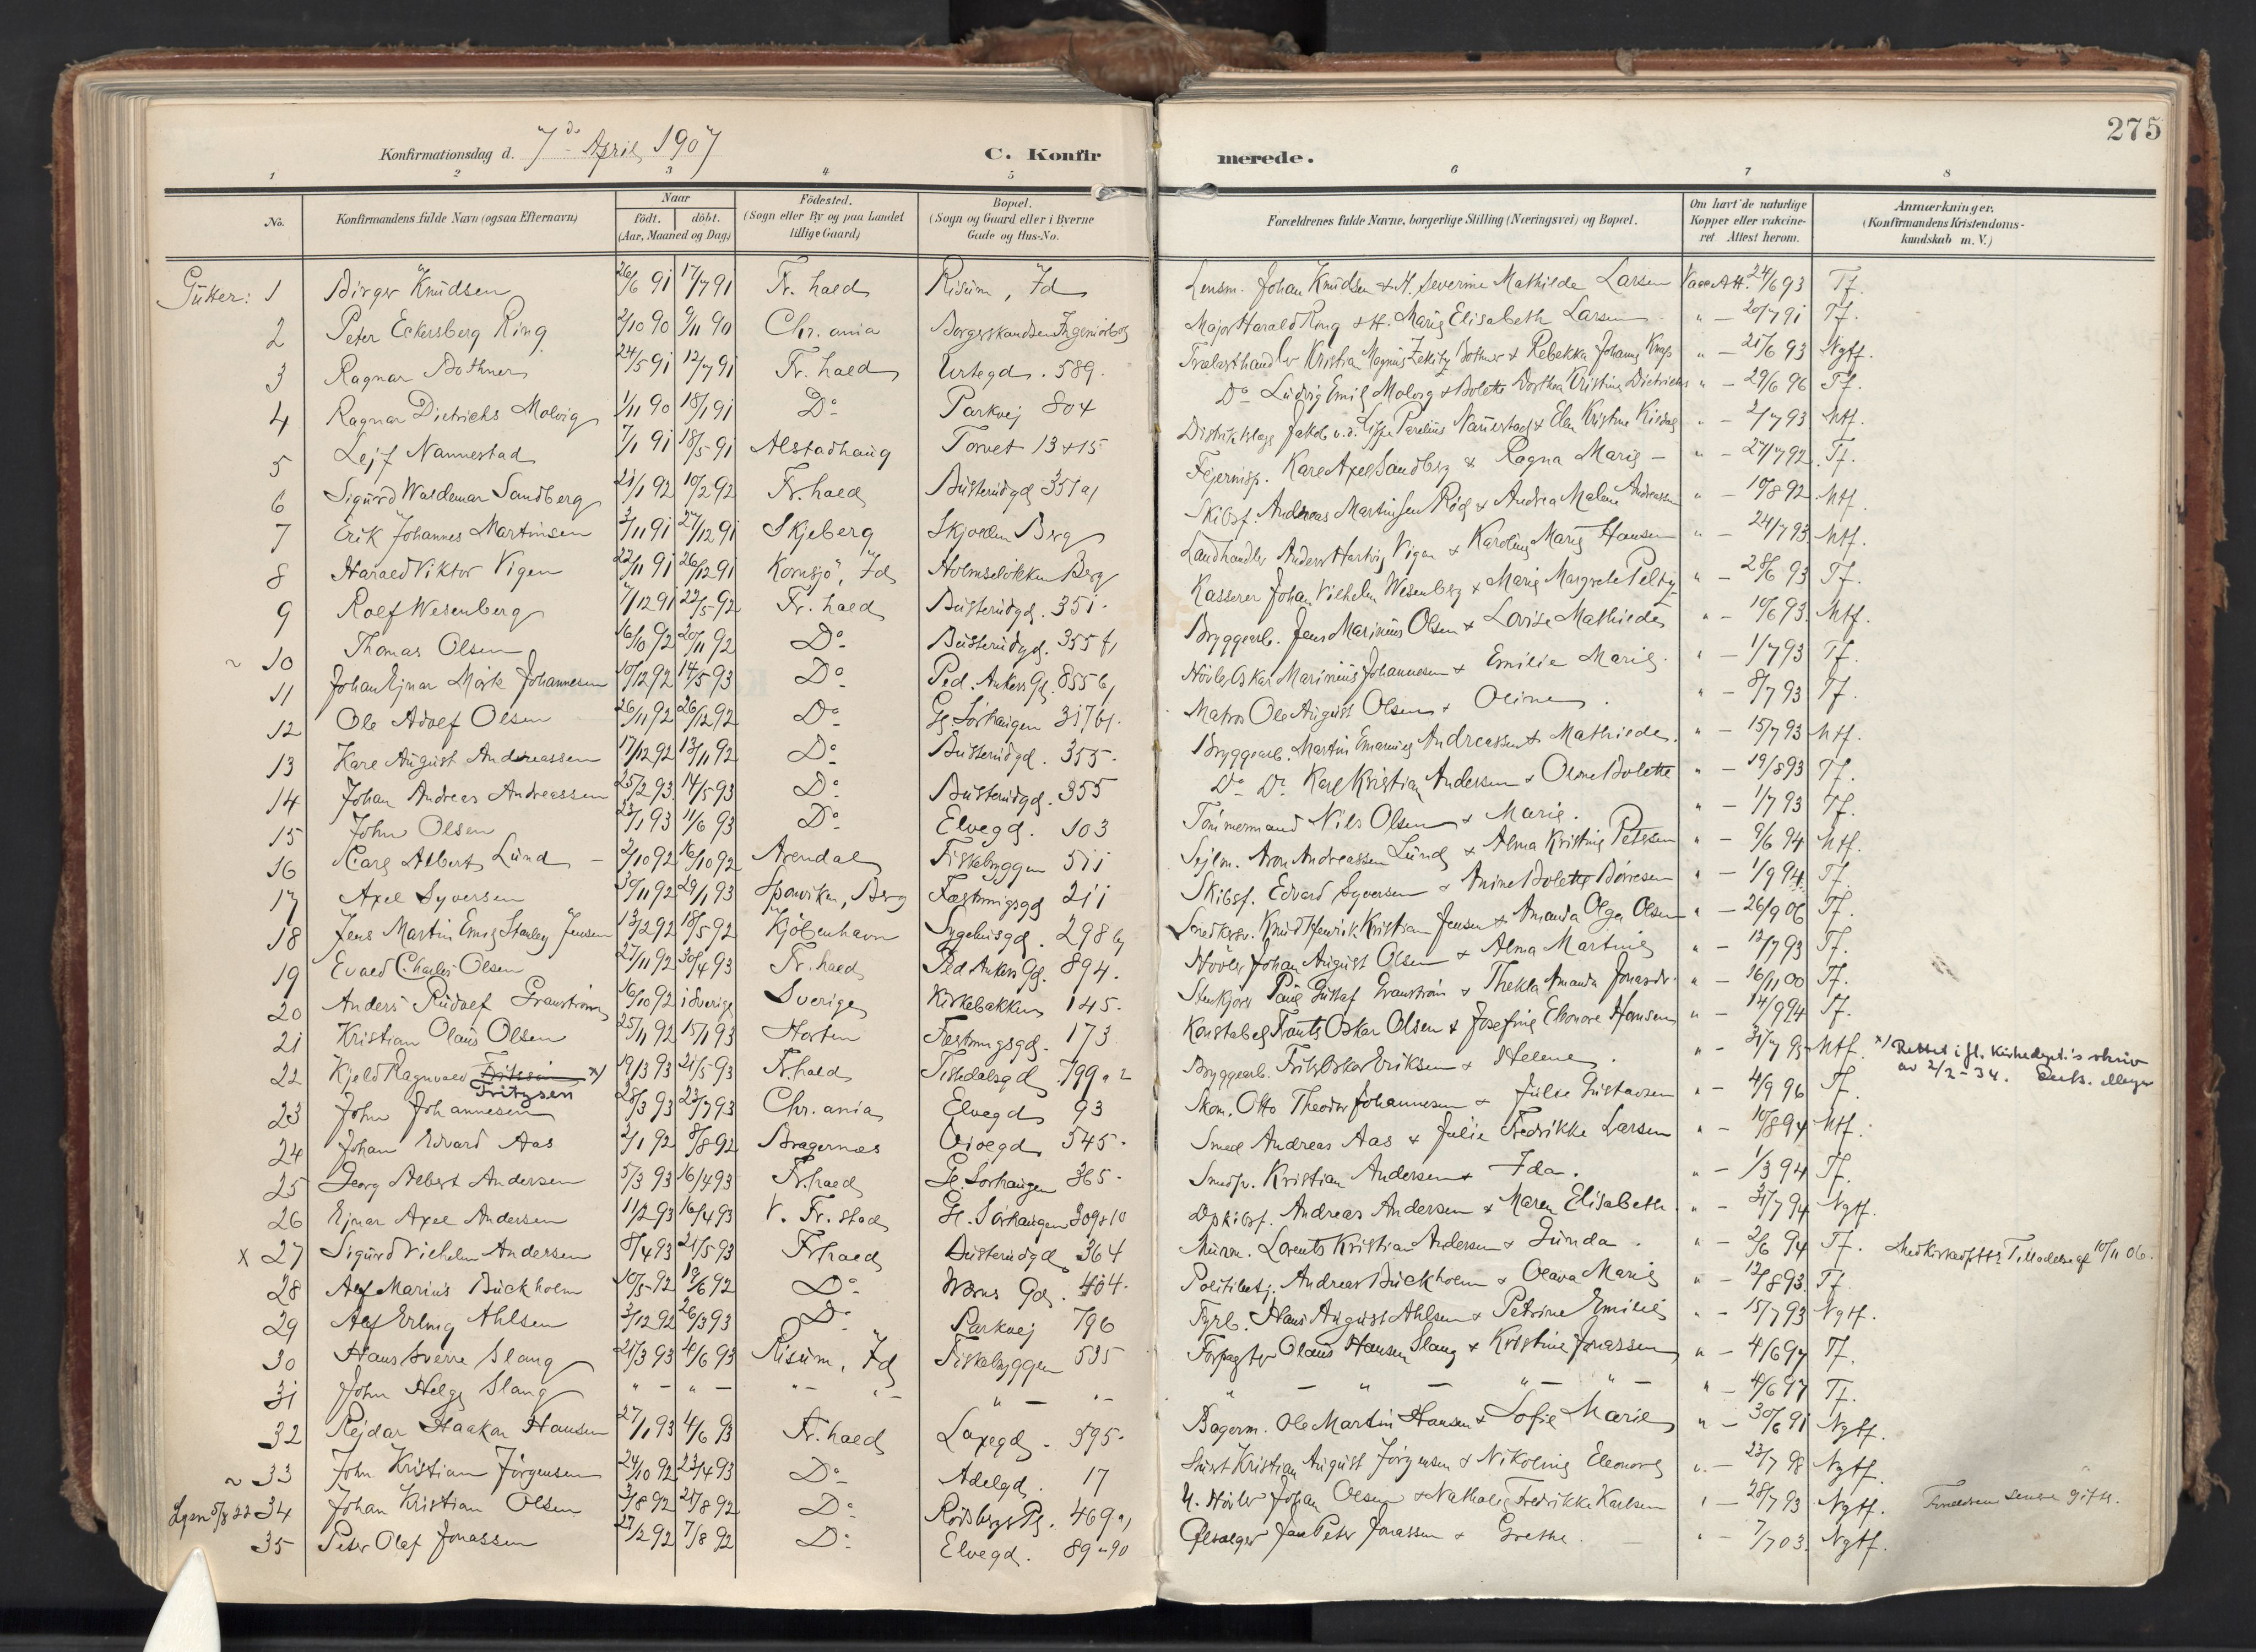 275
Konfirmationsdag d. 7de April 1907 C. Konfirmerede.
1 2 3 4 5 6 7 8
No. Konfirmandens fulde Navn (ogsaa Efternavn) Naar födt. döbt. (Aar, Maaned og Dag) Födested. (Sogn eller By og paa Landet tillige Gaard) Bopæl. (Sogn og Gaard eller i Byerne Gade og Hus-No. Forældrenes fulde Navne, borgerlige Stilling (Næringsvei) og Bopæl. Om havt de naturlige Kopper eller vakcineret Attest herom. Anmærkninger. (Konfirmandens Kristendomskundskab m. V.)
Gutter: 1 Birger Knudsen 26/6 91 17/7 91 Fr. hald Risum, Id Lensm. Johan Knudsen & H. Severine Mathilde Larsen Vacc Att. 24/6 93 Tf.
2 Peter Eckersberg Ring 2/10 90 9/11 90 Chr. ania Borgerskandsen Ingeniörbol Major Harald Ring & H. Marie Elisabeth Larsen " - 20/7 91 Tf.
3 Ragnar Bothner 24/5 91 12/7 91 Fr. hald Urtegd. 589. Trælasthandler Kristian Magnus Bothner & Rebekka Johanne " - 21/6 93 Ngtf.
4 Ragnar Dietrichs Molvig 1/11 90 18/1 91 Do Parkvej 804 Do Ludvig Emil Molvig & Bolette Dorthea Kristine Dietrichs " - 29/6 96 Tf.
5 Lejf Nannestad 7/1 91 18/5 91 Alstadhaug Torvet 13 & 15 Distriktslæge Jakob Nannestad & Elen Kristine " - 2/7 93 Mtf.
6 Sigurd Waldemar Sandberg 21/1 92 10/2 92 Fr. hald Busterudgd 351 a/ Fejermsp. Karl Axel Sandberg & Ragna Marie - " - 27/7 92 Tf.
7 Erik Johannes Martinsen 3/11 91 27/12 91 Skjeberg Skjolden Berg Skibsf. Andreas Martinsen Röd & Andrea Malene Andreassen " - 10/8 92 Mtf.
8 Harald Viktor Vigen 22/11 91 26/12 91 Kornsjö, Id Holmselökken Berg Landhandler Anders Hartvig Vigen & Karoline Marie Hansen " - 24/7 93 Mtf.
9 Rolf Wesenberg 7/12 91 22/5 92 Fr. hald Busterudgd. 351. Kasserer Johan Vilhelm Wesenberg & Marie Margrete Peltz " - 28/6 93 Tf.
~ 10 Thomas Olsen 16/10 92 20/11 92 Do Busterudgd. 355 f/ Bryggearb. Jens Marinius Olsen & Lovise Mathilde " - 10/6 93. Mtf.
11 Johan Ejnar Mörk Johannesen 10/12 92 14/5 93 Do Ped. Ankers Gd. 855 b/ Hövler Oskar Marinius Johannesen & Emilie Marie. " - 1/7 93 Tf.
12 Ole Adolf Olsen 26/11 92 26/12 92 Do Gl. Sörhaugen 317 b/. Matros Ole August Olsen & Oline . " - 8/7 93 Tf.
13 Karl August Andreassen 17/12 92 13/11 92 Do Busterudgd. 355. Bryggearb. Martin Emanuel Andreassen & Mathilde. " - 15/7 93 Mtf.
14 Johan Andreas Andreassen 25/2 93. 14/5 93 Do Busterudgd. 355 Do Do Karl Kristian Andersen & Oline Bolette " - 19/8 93 Tf.
15 John Olsen 23/1 93 11/6 93 Do Elvegd. 103 Tömmermand Nils Olsen & Marie. " - 1/7 93 Tf.
16 Carl Albert Lund - 2/10 92 16/10 92 Arendal Fiskebryggen 511 Sejlm. Aron Andreassen Lund & Alma Kristine Petersen " - 9/6 94 Mtf.
17 Axel Syversen 30/11 92 29/1 93 Sponviken, Berg Fæstningsgd 211 Skibsf. Edvard Syversen & Anine Bolette Börresen " - 1/9 94. Tf.
18 Jens Martin Emil Stanley Jensen 13/2 92 18/5 92 Kjöbenhavn Sygehusgd. 298 b/ Snedkersv. Knud Henrik Kristian Jensen & Amanda Olga Olsen " - 26/9 06 Tf.
19 Evald Charles Olsen 27/11 92 30/4 93 Fr. hald Ped Ankers Gd. 894. Hövler Johan August Olsen & Alma Martine " - 12/7 93 Tf.
20 Anders Rudolf Granström 16/10 92 i Sverige Sverige Kirkebakken 145. Stenkjörer Paul Gustaf Granström & Thekla Amanda Jonasdr. " - 16/11 00 Tf.
21 Kristian Olaus Olsen 25/11 92 15/1 93 Horten Fæstningsgd. 173 Konstabel Frants Oskar Olsen & Josefine Elionore Hansen " - 14/9 94 Tf.
22 Kjeld Ragnvald Fritzsen x) 19/3 93 21/5 93 Fr.hald Tistedalsgd 799 a 2 Bryggearb. Fritz Oskar Eriksen & Helene. " - 31/7 95 Mtf. x) Rettet i fl. Kirkedept.'s skriv av 2/2-34.
23 John Johannesen 28/3 93 23/7 93 Chr. ania Elvegd 93 Skom. Otto Theodor Johannesen & Julie Gustavsen " - 4/9 96 Tf.
24 Johan Edvard Aas 2/1 92 8/8 92 Bragernæs Violgd 545. Smed Andreas Aas & Julie Fredrikke Larsen " - 10/8 94 Mtf.
25 Georg Albert Andersen 5/3 93 16/4 93 Fr.hald Gl. Sörhaugen 365. Smedsv. Kristian Andersen & Ida. " - 1/3 94 Tf.
26 Ejnar Axel Andersen 11/2 93 16/4 93 V. Fr. stad Gl. Sörhaugen 309 & 10 Dpskibsf. Andreas Andersen & Maren Elisabeth. " - 31/7 94 Ngtf.
x 27 Sigurd Vilhelm Andersen 8/4 93 21/5 93 Fr.hald Busterudgd 364 Murm. Lorents Kristian Andersen & Gunda . " - 2/6 94 Tf. Med Kirkedpttets Tilladelse af 10/11 06.
28 Alf Marius Buckholm 10/5 92 19/6 92 Do Wærns Gd. 404. Politibetj. Andreas Buckholm & Olava Marie " - 12/8 93. Tf.
29 Alf Erling Ahlsen 3/12 92 26/3 93 Do Parkvej 796 Fyrb. Hans August Ahlsen & Petrine Emilie " - 15/7 93 Ngtf.
30 Hans Sverre Slang 21/3 93 4/6 93 Risum, Id Fiskebryggen 535 Forpagter Olaus Hansen Slang & Kristine Jonassen " - 4/6 97 Tf.
31 John Helge Slang " - " - " - " - " - " - " - " - " - " - " - 4/6 97 Tf.
32 Rejdar Haakon Hansen 27/1 93 4/6 93 Fr. hald Laxegd. 595. Bagerm. Ole Martin Hansen & Sofie Marie " - 30/6 91 Ngtf.
~ 33 John Kristian Jörgensen 24/10 92 23/4 93 Do Adelgd. 17 Kristian August Jörgensen & Nikoline Eleonore " - 23/7 98 Ngtf.
5/8 22 34 Johan Kristian Olsen 3/8 92 21/8 92 Do Rödsbergs Pl. 469 a/ U. Hövler Johan Olsen & Nathalie Fredrikke Karlsen " - 28/7 93 Ngtf. Forældrene senere gift.
35 Peter Olaf Jonassen 27/2 92 7/8 92 Do Elvegd. 89-90 Ölsælger Jens Peter Jonassen & Grethe. " - 7/7 03. Ngtf.